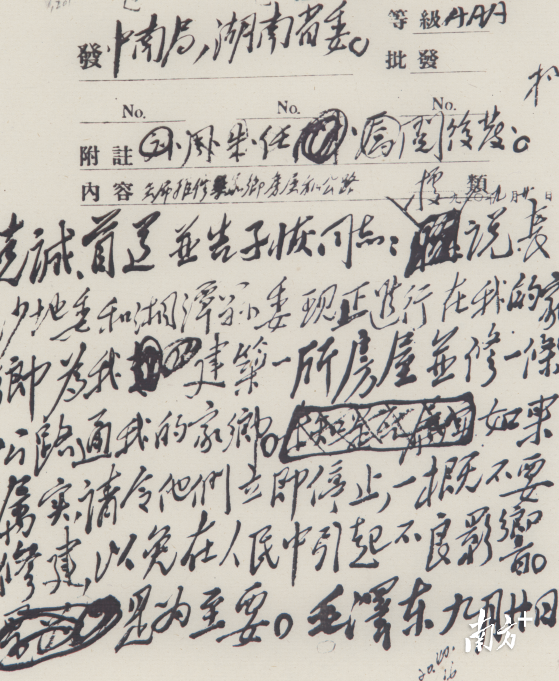 發 中南局，湖南省委。
等級AAA
批發
No.
No.
No.
附註 刘·周·朱·任 ·高阅後發。
内容
類
九月廿日
克誠、首道並告子恢同志：據说長
沙地委和湘潭縣委现正進行在我的家
鄉為我建築一所房屋並修一條
公路通我的家鄉。如果
属实，請令他們立即停止，一概不要
修建，以免在人民中引起不良影響。
是为至要。毛澤东 九月廿日
南方+